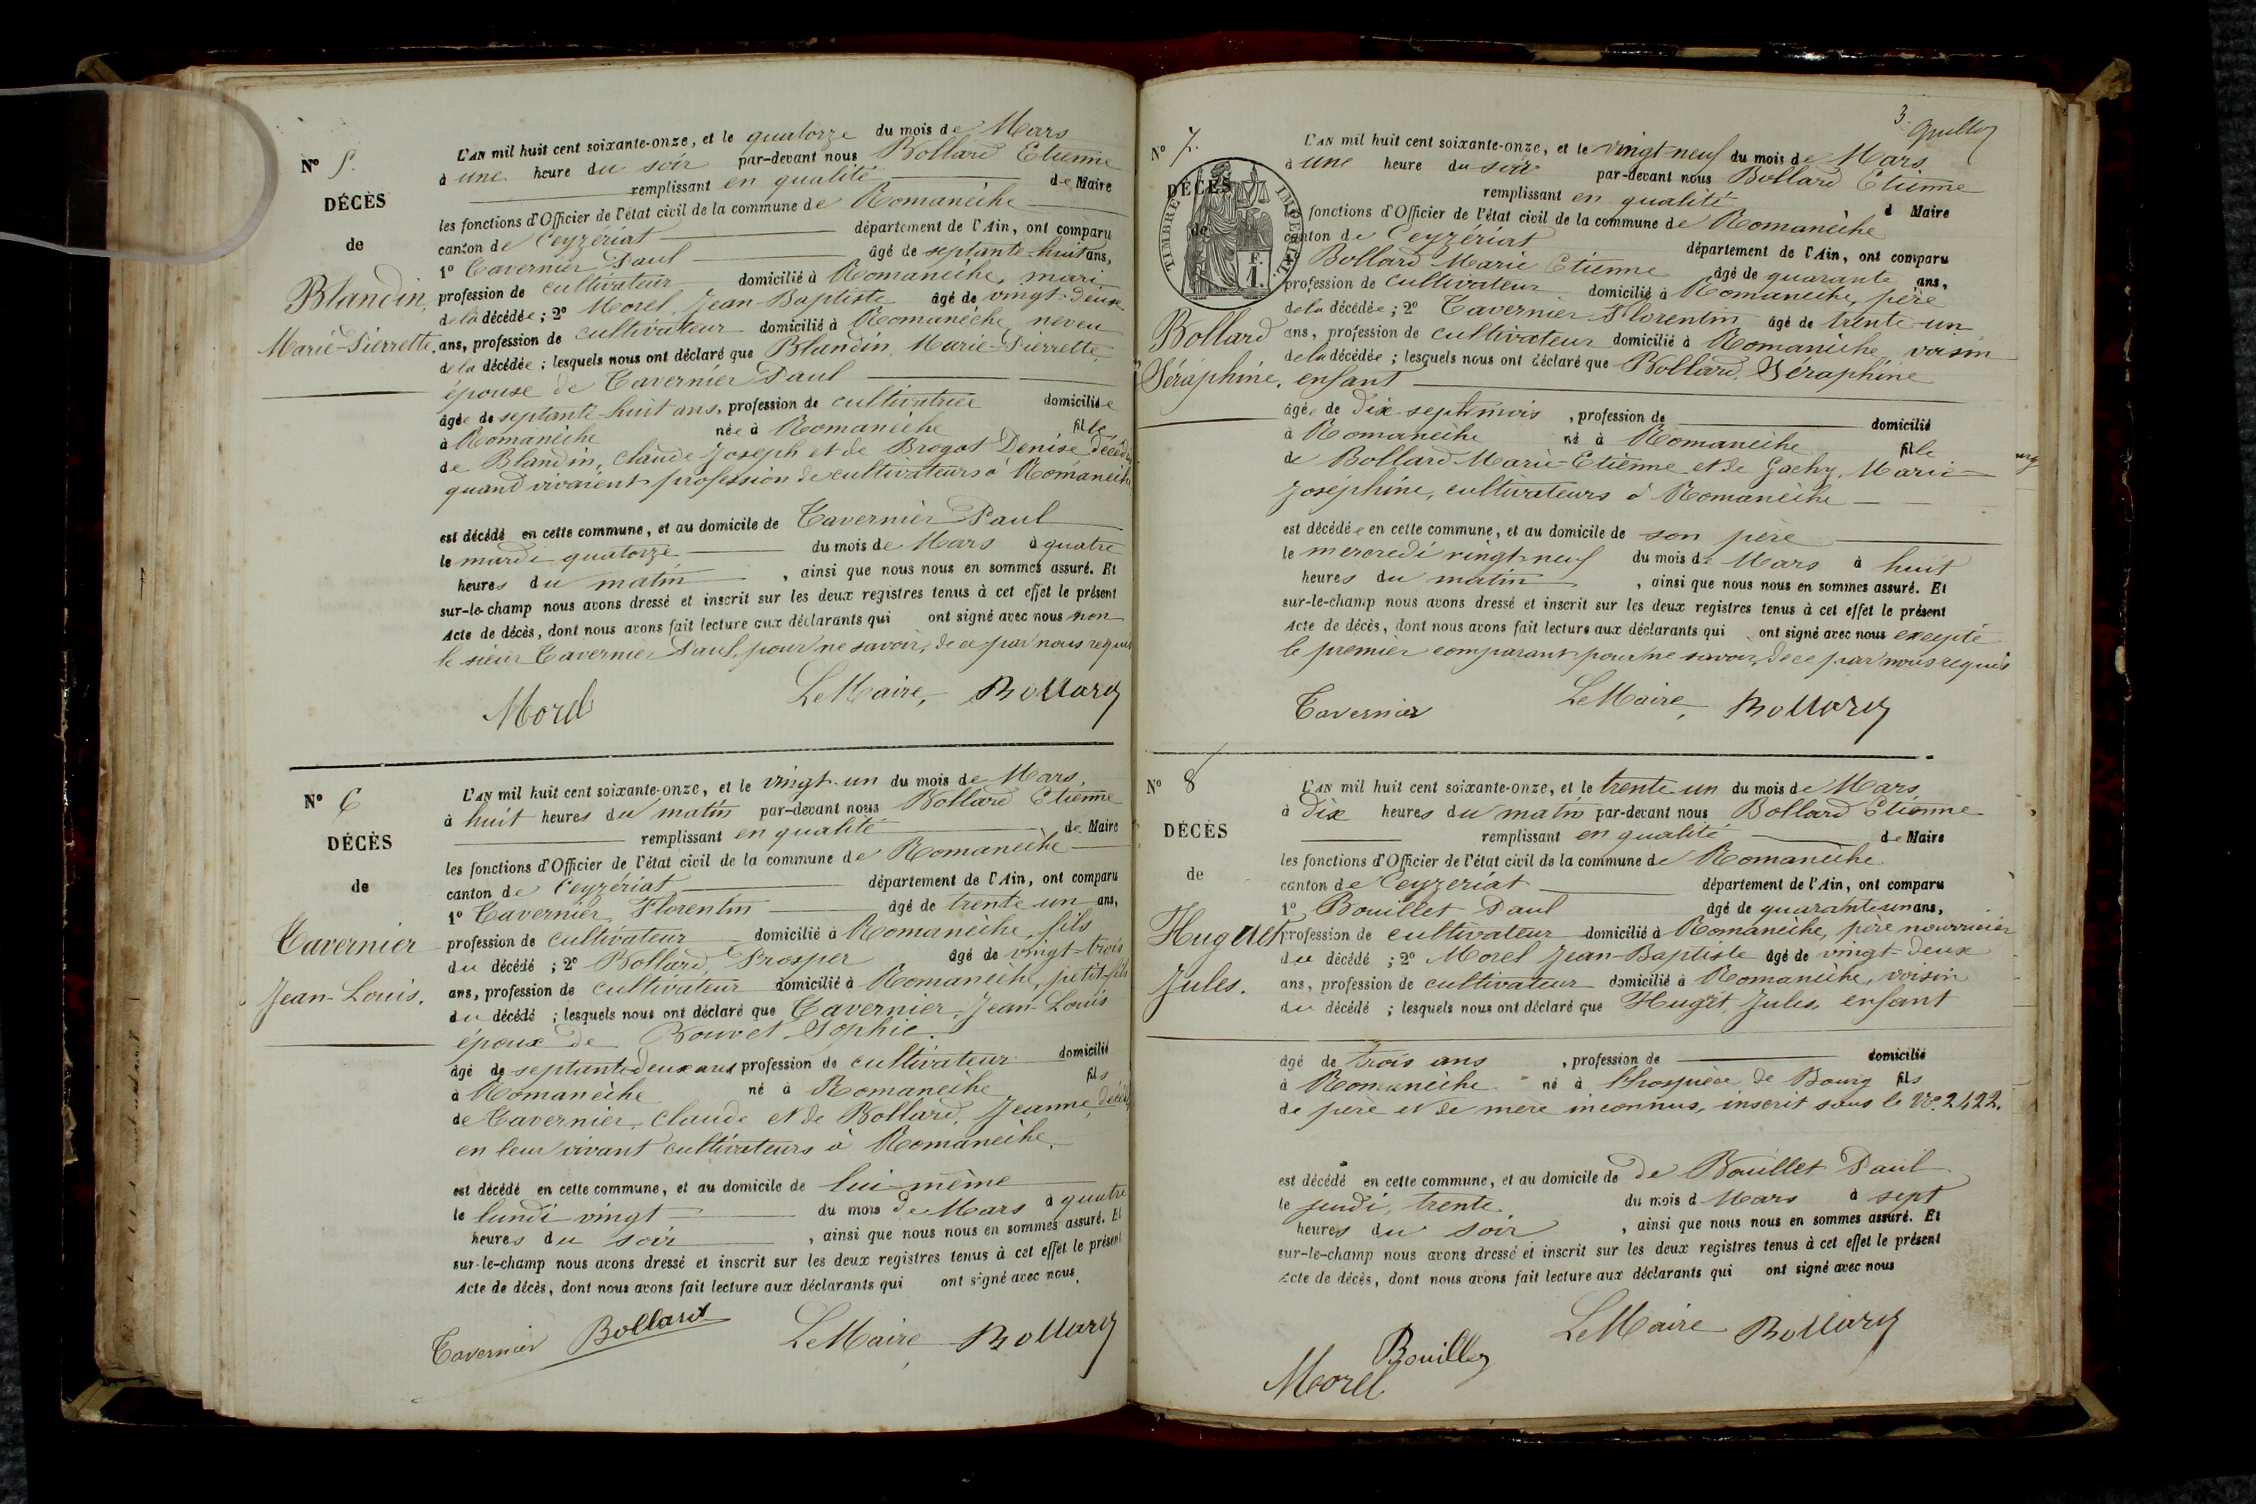 N° 5.
DÉCÈS
de
Blandin,
Marie-Pierrette.
L'AN mil huit cent soixante-onze, et le quatorze du mois de Mars
à une heure du soir par-devant nous Bollard Etienne
remplissant en qualité de Maire
les fonctions d'Officier de l'état civil de la commune de Romanèche
canton de Ceyzériat département de l'Ain, ont comparu
1° Tavernier Paul âgé de septante-huit ans,
profession de cultivateur domicilié à Romanèche, mari
de la décédée ; 2° Morel Jean-Baptiste âgé de vingt-deux
ans, profession de cultivateur domicilié à Romanèche neveu
de la décédée ; lesquels nous ont déclaré que Blandin, Marie-Pierrette,
épouse de Tavernier Paul
âgée de septante-huit ans, profession de cultivatrice domiciliée
à Romanèche née à Romanèche fille
de Blandin, Claude Joseph et de Brogat Denise décédés
quand vivaient profession de cultivateurs à Romanèche
est décédé en cette commune, et au domicile de Tavernier Paul
le mardi quatorze du mois de Mars à quatre
heures du matin, ainsi que nous nous en sommes assuré. Et
sur-le-champ nous avons dressé et inscrit sur les deux registres tenus à cet effet le présent
Acte de décès, dont nous avons fait lecture aux déclarants qui ont signé avec nous non
le sieur Tavernier Paul, pour ne savoir, de ce par nous requis
Morel Le Maire, Bollard
N° 6
DÉCÈS
de
Tavernier
Jean-Louis.
L'AN mil huit cent soixante-onze, et le vingt-un du mois de Mars,
à huit heures du matin par-devant nous Bollard Etienne
remplissant en qualité de Maire
les fonctions d'Officier de l'état civil de la commune de Romanèche
canton de Ceyzériat département de l'Ain, ont comparu
1° Tavernier, Florentin âgé de trente un ans,
profession de cultivateur domicilié à Romanèche, fils
du décédé ; 2° Bollard, Prosper âgé de vingt-trois
ans, profession de cultivateur domicilié à Romanèche, petit-fils
du décédé ; lesquels nous ont déclaré que Tavernier, Jean-Louis
époux de Bouvet Sophie
âgé de septante-deux ans profession de cultivateur domicilié
à Romanèche né à Romanèche fils
de Tavernier, Claude et de Bollard, Jeanne, décédés
en leur vivant cultivateurs à Romanèche.
est décédé en cette commune, et au domicile de lui-même
le lundi vingt du mois de Mars à quatre
heures du soir, ainsi que nous nous en sommes assuré. Et
sur-le-champ nous avons dressé et inscrit sur les deux registres tenus à cet effet le présent
Acte de décès, dont nous avons fait lecture aux déclarants qui ont signé avec nous.
Tavernier Bollard Le Maire, Bollard
3.
N° 7.
TIMBRE IMPÉRIAL.
F.
1.
DÉCÈS
de
Bollard
Séraphine.
L'AN mil huit cent soixante-onze, et le vingt neuf du mois de Mars
à une heure du soir par-devant nous Bollard Etienne
remplissant en qualité d Maire
les fonctions d'Officier de l'état civil de la commune de Romanèche
canton de Ceyzériat département de l'Ain, ont comparu
Bollard Marie Etienne âgé de quarante ans,
profession de cultivateur domicilié à Romanèche, père
de la décédée ; 2° Tavernier Florentin âgé de trente-un
ans, profession de cultivateur domicilié à Romanèche voisin
de la décédée ; lesquels nous ont déclaré que Bollard, Séraphine
enfant
âgée de dix sept mois, profession de domicilié
à Romanèche né à Romanèche fille
de Bollard Marie-Etienne et de Gachy, Marie-
Joséphine, cultivateurs à Romanèche
est décédée en cette commune, et au domicile de son père
le mercredi vingt-neuf du mois de Mars à huit
heures du matin, ainsi que nous nous en sommes assuré. Et
sur-le-champ nous avons dressé et inscrit sur les deux registres tenus à cet effet le présent
Acte de décès, dont nous avons fait lecture aux déclarants qui ont signé avec nous excepté
le premier comparant pour ne savoir, de ce par nous requis
Tavernier Le Maire, Bollard
N° 8
DÉCÈS
de
Huguet
Jules.
L'AN mil huit cent soixante-onze, et le trente un du mois de Mars,
à dix heures du matin par-devant nous Bollard Etienne
remplissant en qualité de Maire
les fonctions d'Officier de l'état civil de la commune de Romanèche
canton de Ceyzeriat département de l'Ain, ont comparu
1° Bouillet Paul âgé de quarante un ans,
profession de cultivateur domicilié à Romanèche, père nourricier
du décédé ; 2° Morel Jean-Baptiste âgé de vingt-deux
ans, profession de cultivateur domicilié à Romanèche, voisin
du décédé ; lesquels nous ont déclaré que Huget, Jules, enfant
âgé de trois ans, profession de domicilié
à Romanèche né à l'hospice de Bourg fils
de père et de mère inconnus, inscrit sous le N° 2422.
est décédé en cette commune, et au domicile de de Bouillet Paul
le jeudi, trente du mois d Mars à sept
heures du soir, ainsi que nous nous en sommes assuré. Et
sur-le-champ nous avons dressé et inscrit sur les deux registres tenus à cet effet le présent
Acte de décès, dont nous avons fait lecture aux déclarants qui ont signé avec nous
Le Maire Bollard
Bouillet
Morel